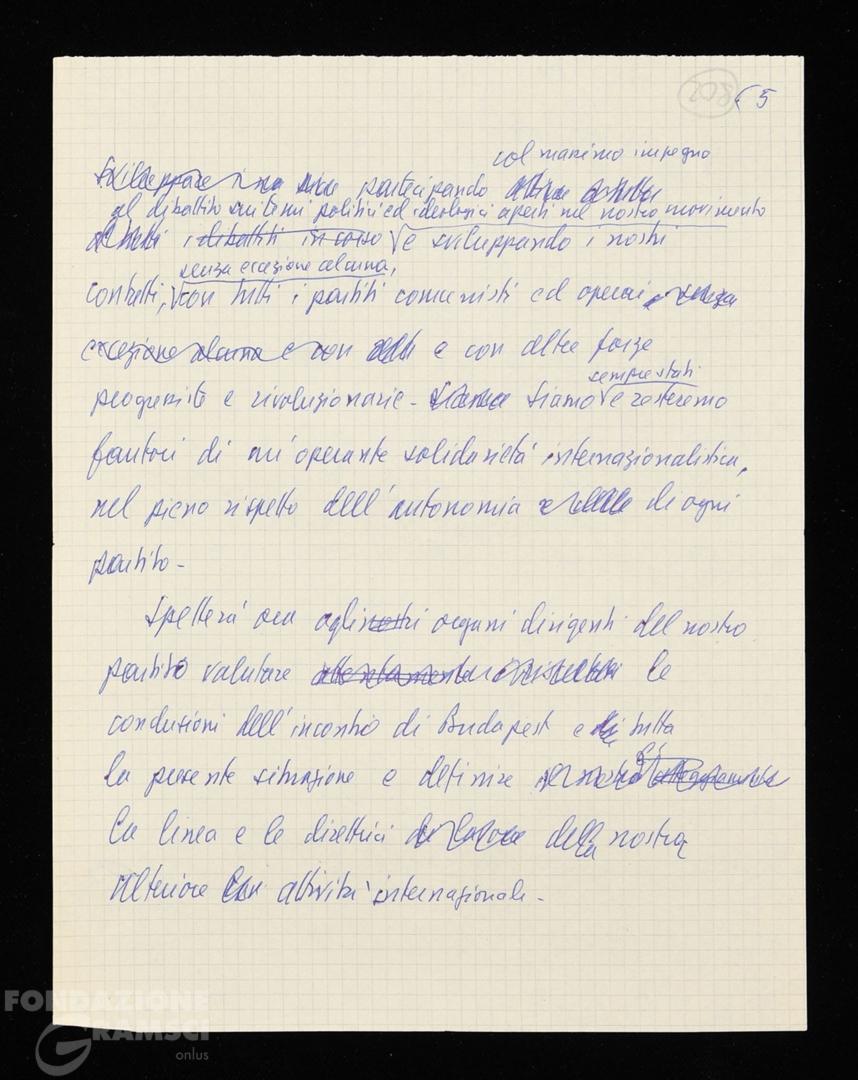 208 5
col massimo impegno
Sviluppare una partecipando
al dibattito sui temi politici ed ideologici aperti nel nostro movimento
i dibattiti in corso e sviluppando i nostri
senza eccezione alcuna,
contatti, con tutti i partiti comunisti ed operai senza
eccezione alcuna e con e con altre forze
sempre stati
progressiste e rivoluzionarie - Siamo e resteremo
fautori di un'operante solidarietà internazionalistica,
nel pieno rispetto dell'autonomia di ogni
partito -
Spetterà ora agli nostri organi dirigenti del nostro
partito valutare attentamente le
conclusioni dell'incontro di Budapest e di tutta
la presente situazione e definire il nostro atteggiamento
la linea e le direttrici della nostra
ulteriore attività internazionale -
FONDAZIONE
GRAMSCI
onlus